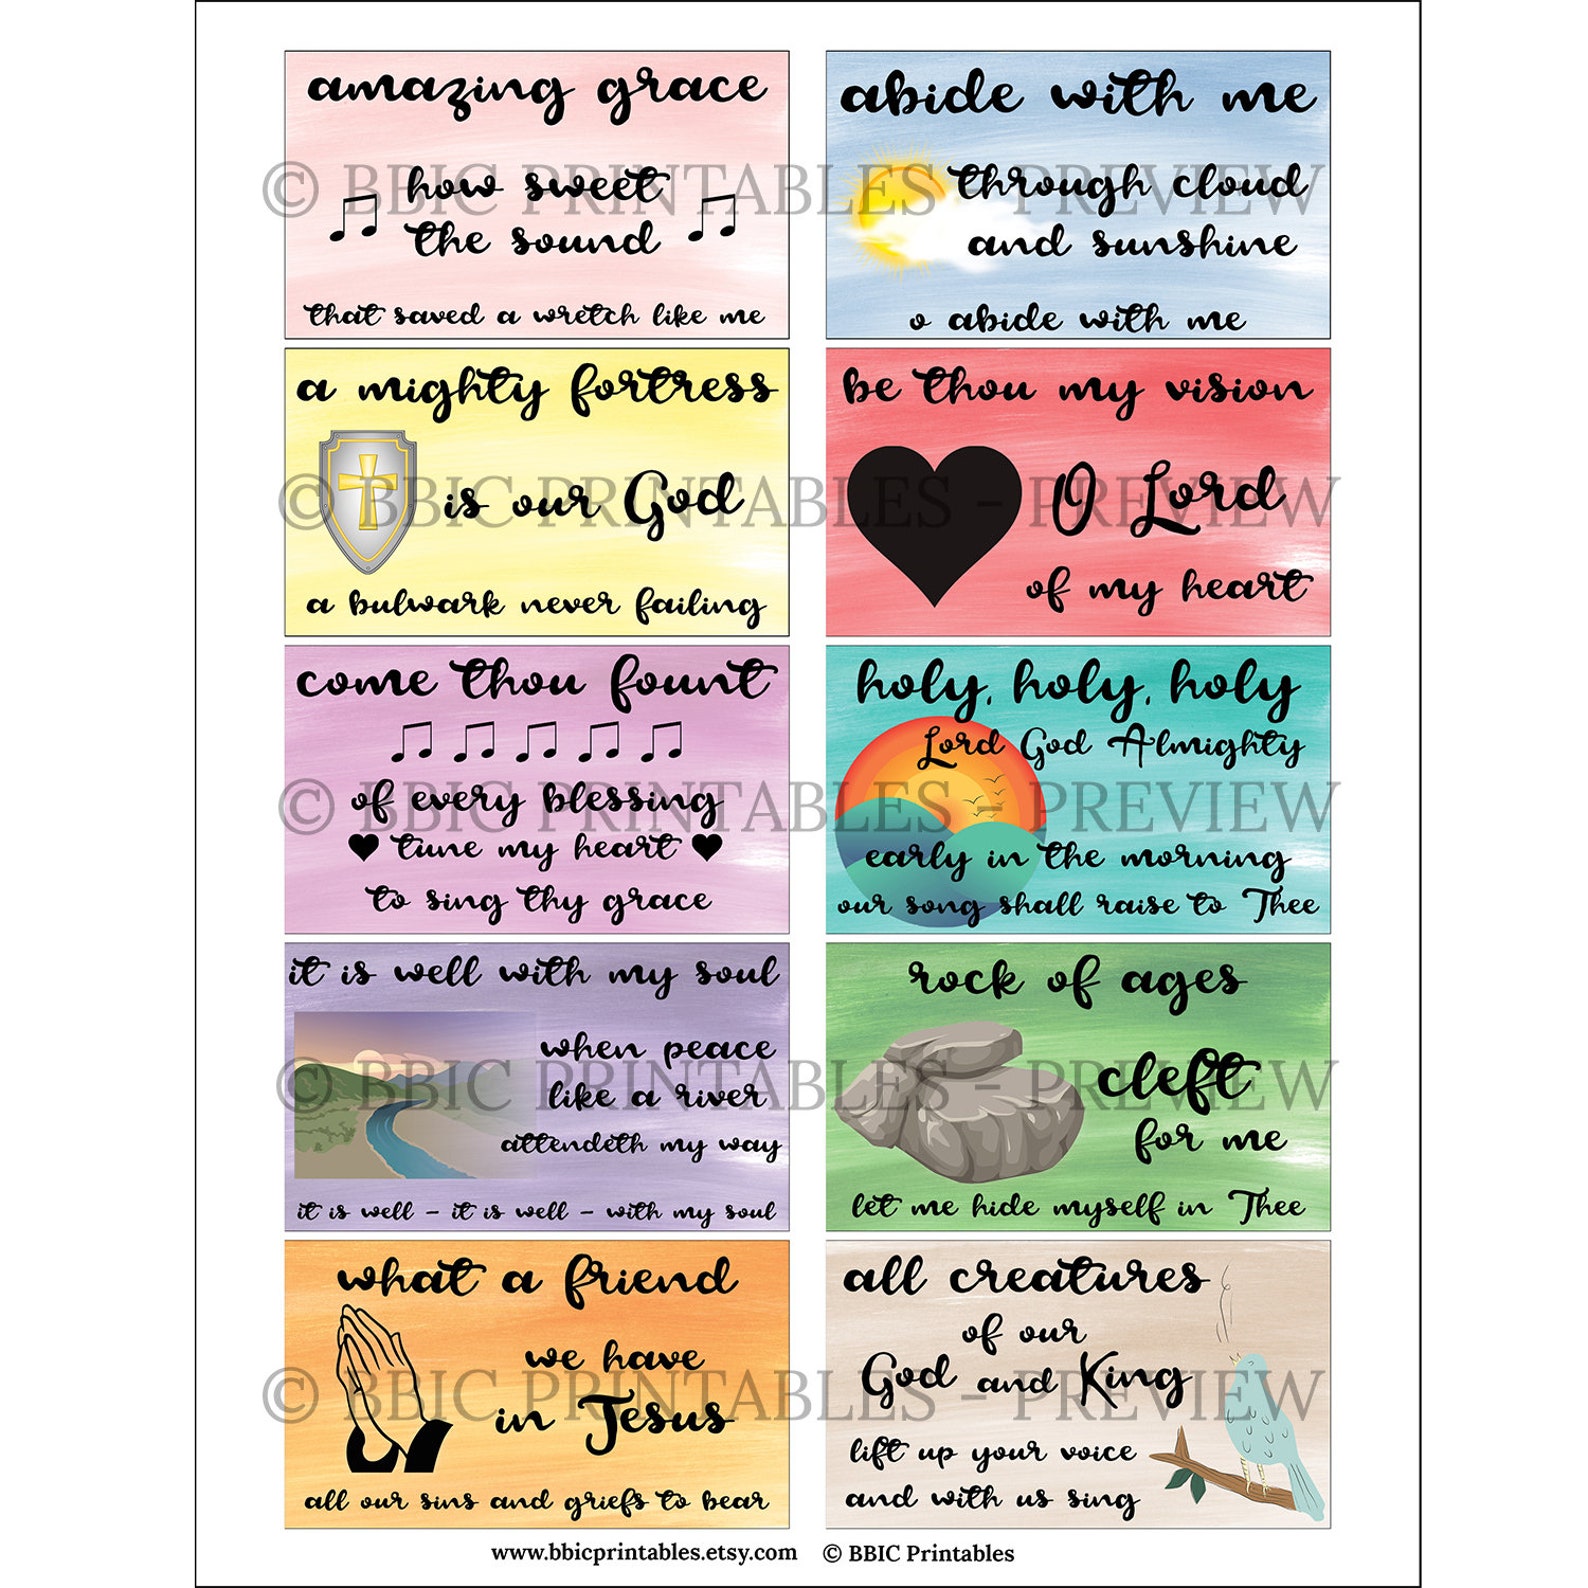 amazing grace
how sweet
the sound
that saved a wretch like me
abide with me
through cloud
and sunshine
o abide with me
© BBIC PRINTABLES - PREVIEW
a mighty fortress
is our God
a bulwark never failing
be thou my vision
O Lord
of my heart
© BBIC PRINTABLES - PREVIEW
come thou fount
of every blessing
tune my heart
to sing thy grace
holy, holy, holy
Lord God Almighty
early in the morning
our song shall raise to Thee
© BBIC PRINTABLES - PREVIEW
it is well with my soul
when peace
like a river
attendeth my way
it is well - it is well - with my soul
rock of ages
cleft
for me
let me hide myself in Thee
© BBIC PRINTABLES - PREVIEW
what a friend
we have
in Jesus
all our sins and griefs to bear
all creatures
of our
God and King
lift up your voice
and with us sing
© BBIC PRINTABLES - PREVIEW
www.bbicprintables.etsy.com © BBIC Printables